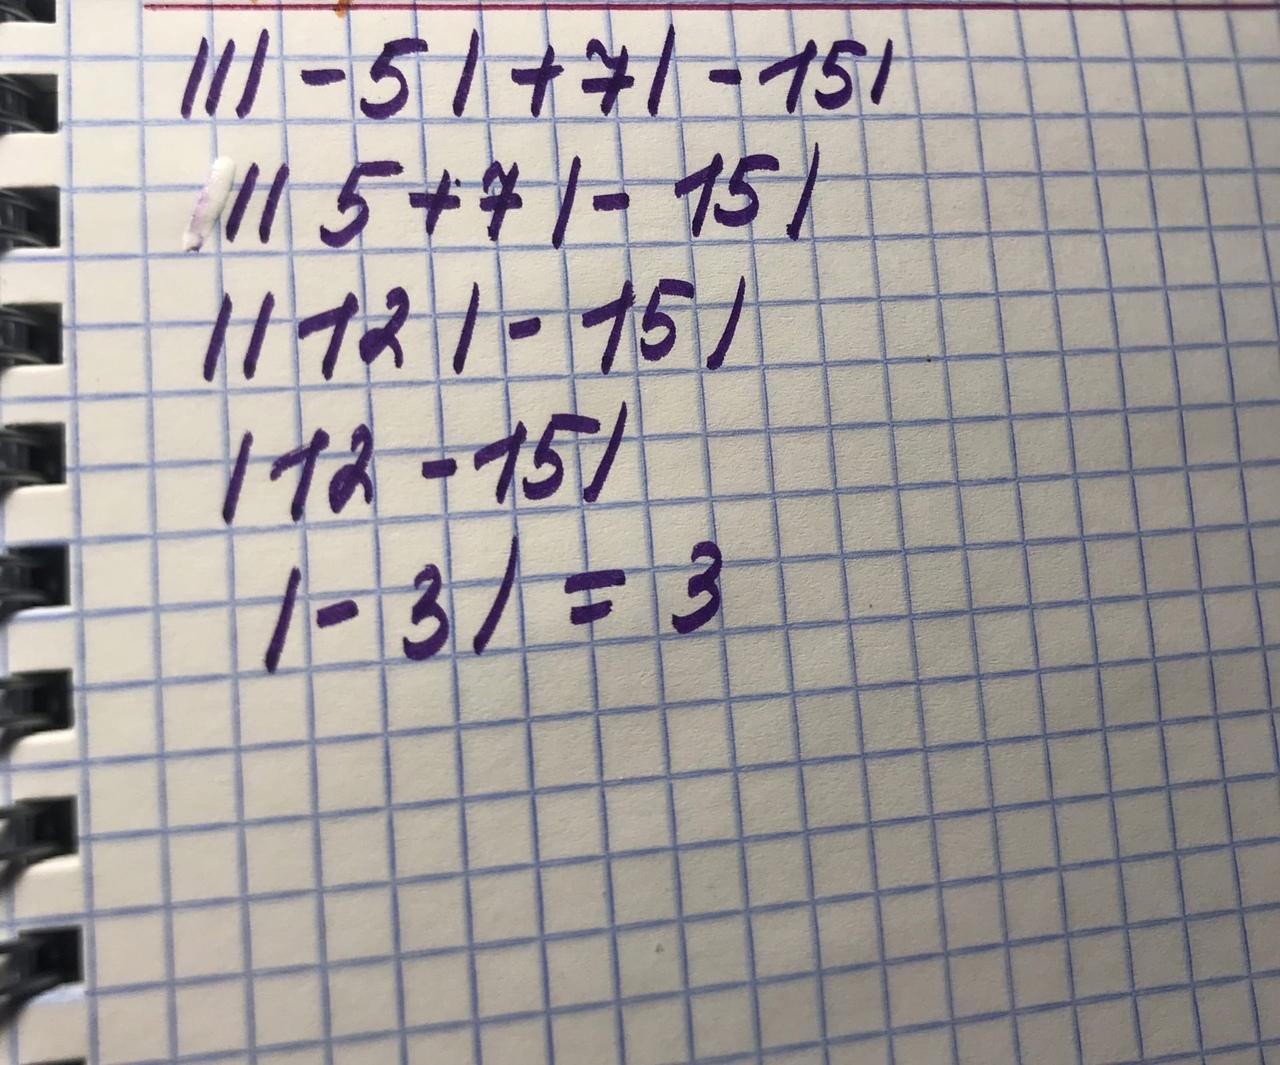 ||| - 5 | + 7 | - 15 |
|| 5 + 7 | - 15 |
|| 12 | - 15 |
| 12 - 15 |
| - 3 | = 3